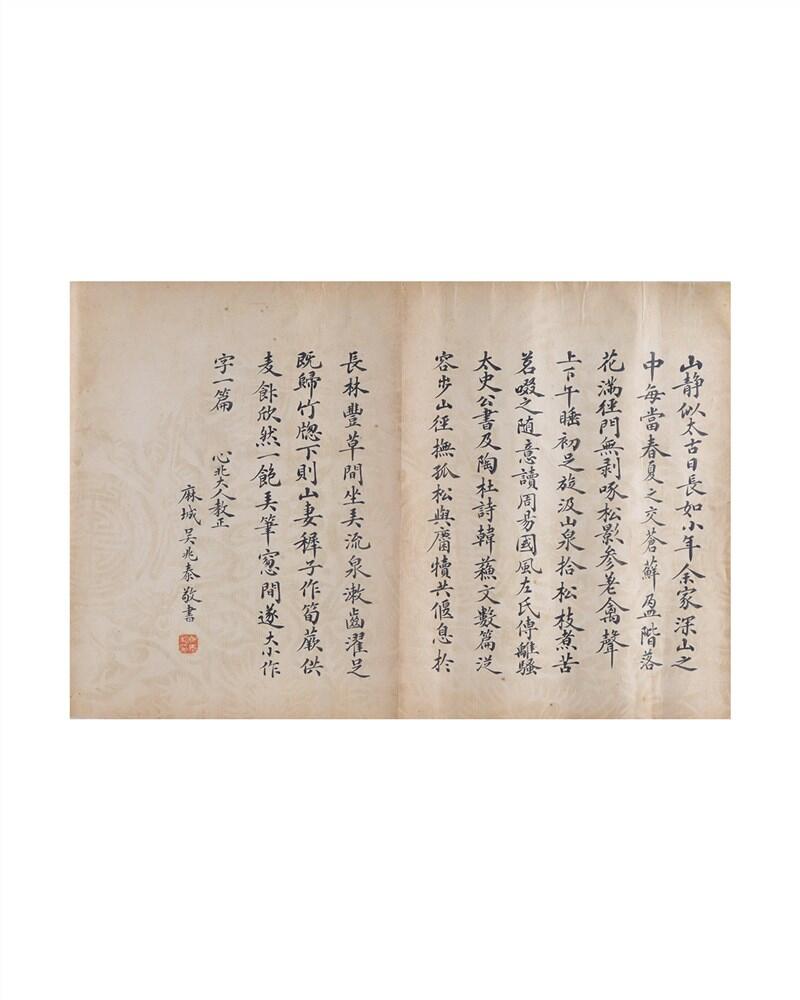 山静似太古日長如小年余家深山之
中每當春夏之交蒼蘚盈階落
花滿徑門無剥啄松影參差禽聲
上下午睡初足旋汲山泉拾松枝煮苦
茗啜之随意讀周易國風左氏傳離騷
太史公書及陶杜詩韓蘓文數篇從
容步山徑撫孤松與麛犢共偃息於
長林豐草間坐弄流泉漱齒濯足
既歸竹牕下則山妻穉子作筍蕨供
麦飰欣然一飽弄筆窻間遂大小作
字一篇
心兆大人教正
麻城吴兆泰敬書